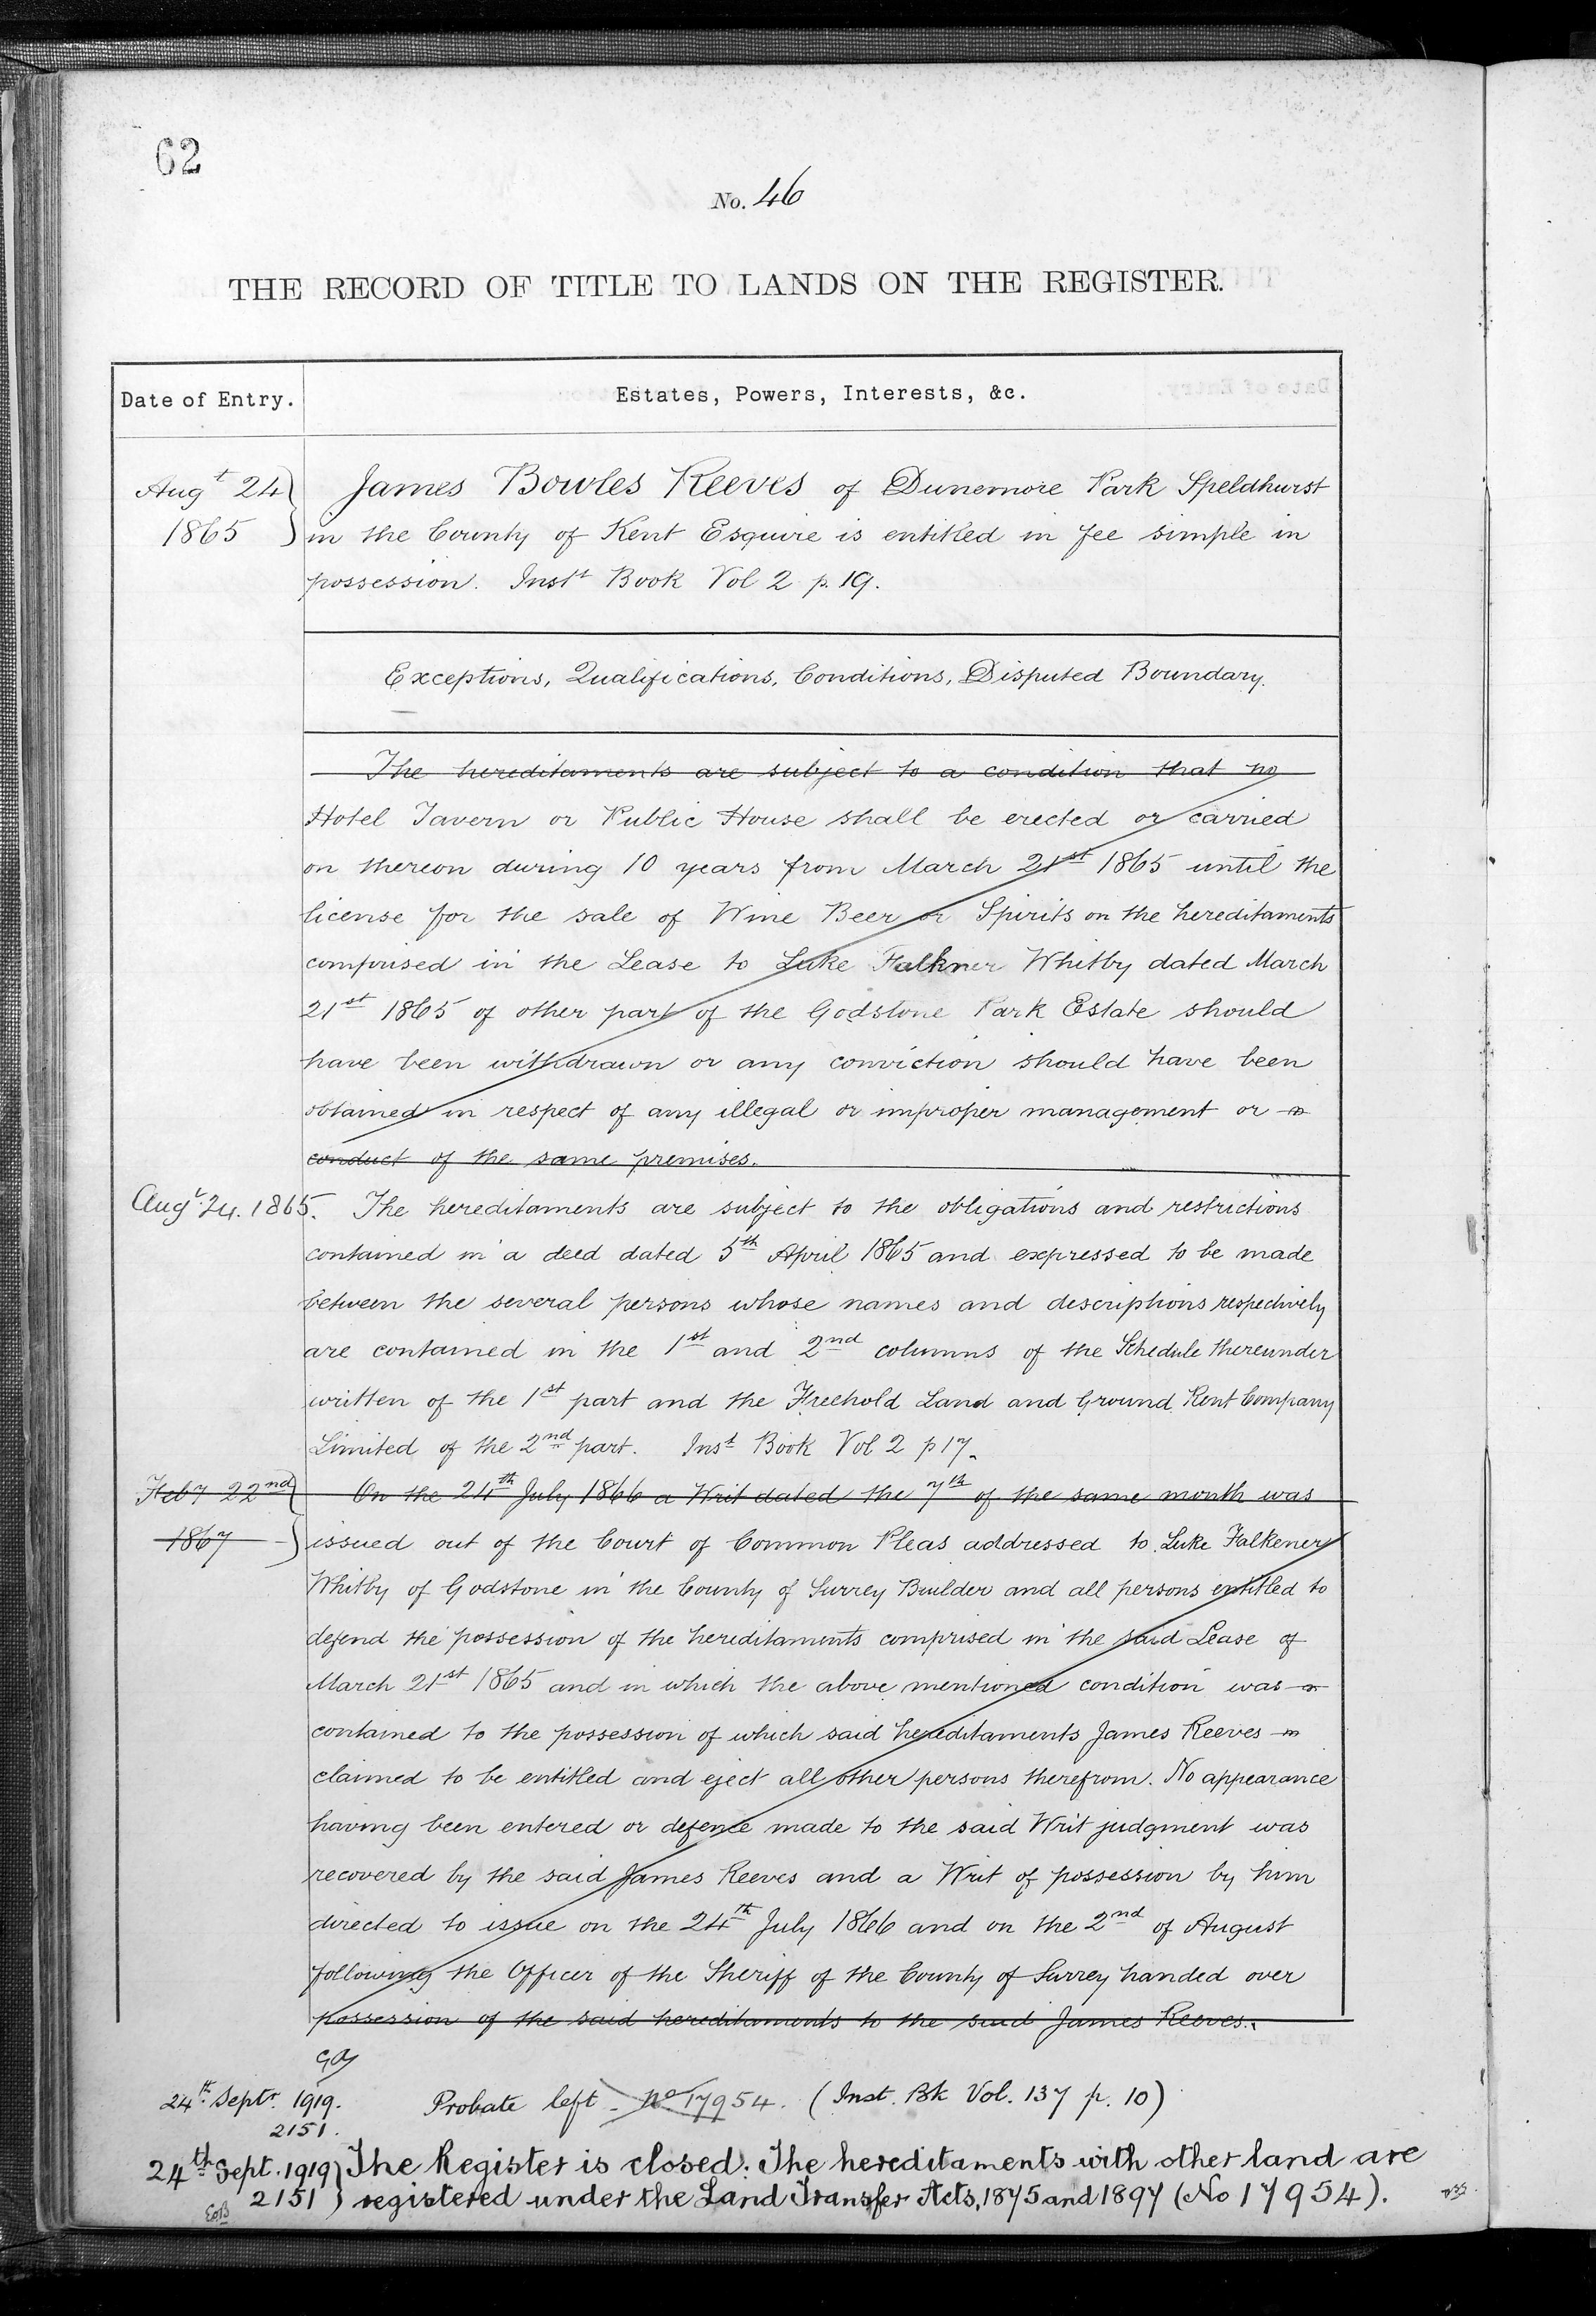 62
No. 46
THE RECORD OF TITLE TO LANDS ON THE REGISTER.
Date of Entry.
Estates, Powers, Interests, &c.
Augt 24
1865
James Bowles Reeves of Dunemore Park Speldhurst
in the County of Kent Esquire is entitled in fee simple in
possession. Instt Book Vol 2 p. 19.
Exceptions, Qualifications, Conditions, Disputed Boundary.
The hereditaments are subject to a condition that no
Hotel Tavern or Public House shall be erected or carried
on thereon during 10 years from March 21st 1865 until the
license for the sale of Wine Beer or Spirits on the hereditaments
comprised in the Lease to Luke Falkner Whitby dated March
21st 1865 of other part of the Godstone Park Estate should
have been withdrawn or any conviction should have been
obtained in respect of any illegal or improper management or
conduct of the same premises.
Augt. 24. 1865. The hereditaments are subject to the obligations and restrictions
contained in a deed dated 5th April 1865 and expressed to be made
between the several persons whose names and descriptions respectively
are contained in the 1st and 2nd columns of the Schedule thereunder
written of the 1st part and the Freehold Land and Ground Rent Company
Limited of the 2nd part. Inst Book Vol 2 p 17.
Feby 22nd
1867
On the 24th July 1866 a Writ dated the 7th of the same month was
issued out of the Court of Common Pleas addressed to Luke Falkener
Whitby of Godstone in the County of Surrey Builder and all persons entitled to
defend the possession of the hereditaments comprised in the said Lease of
March 21st 1865 and in which the above mentioned condition was
contained to the possession of which said hereditaments James Reeves
claimed to be entitled and eject all other persons therefrom. No appearance
having been entered or defence made to the said Writ judgment was
recovered by the said James Reeves and a Writ of possession by him
directed to issue on the 24th July 1866 and on the 2nd of August
following the Officer of the Sheriff of the County of Surrey handed over
possession of the said hereditaments to the said James Reeves.
24th Septr. 1919.
2151.
Probate left. No 17954. (Inst. Bk Vol. 137 p. 10)
24th Sept. 1919 The Register is closed. The hereditaments with other land are
2151 registered under the Land Transfer Acts, 1875 and 1897 (No 17954).